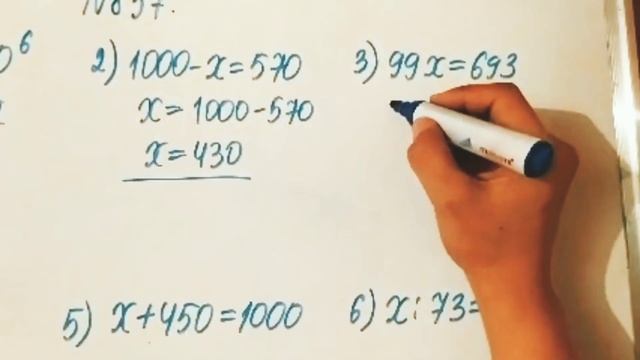 2) 1000-x=570
x=1000-570
x=430
3) 99x=693
5) x+450=1000
6) x:73=